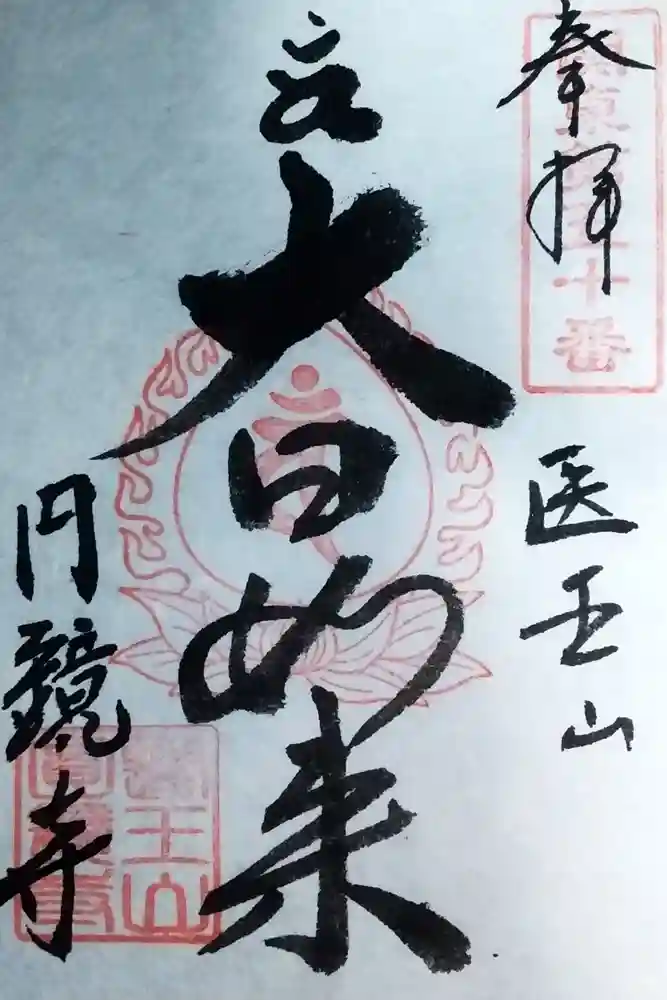 奉拝
十番
医王山
大日如来
円鏡寺
醫王山
圓鏡寺